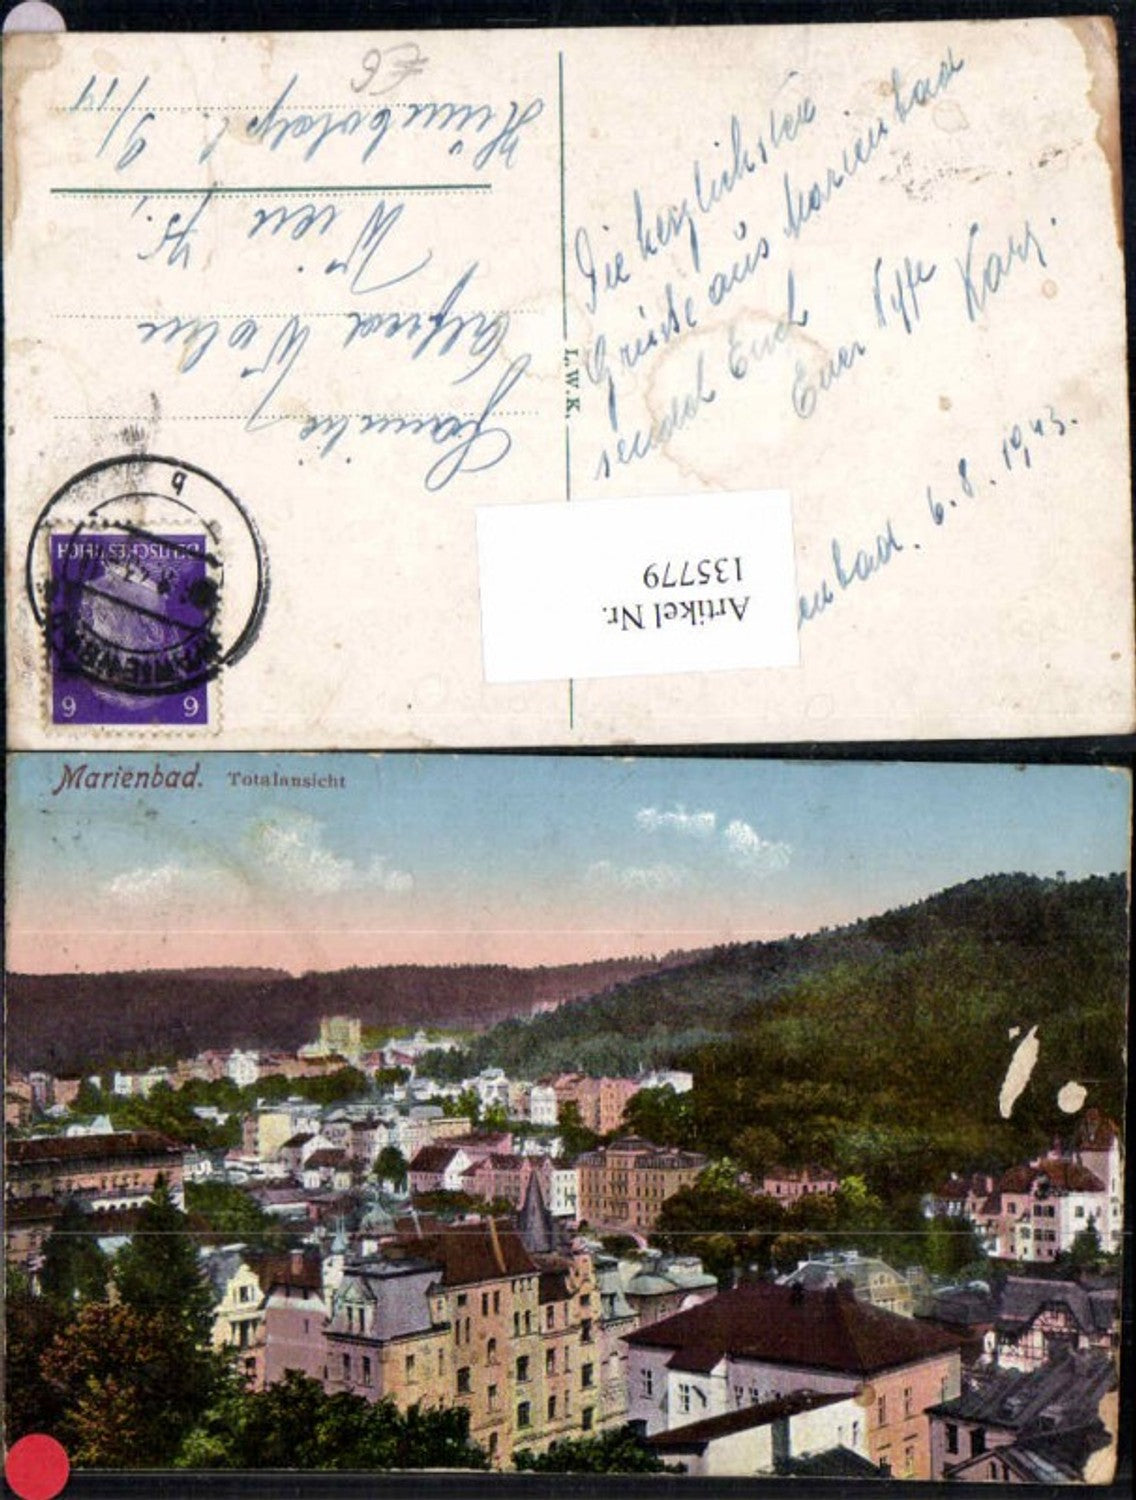 Die herzlichsten
Grüße aus Marienbad
sendet Euch
Euer Neffe
Karg.
enbad. 6.8.1943.
L.W.K.
Familie
Alfred
Wien
9/14
b
DEUTSCHES REICH
MARIENB
6 6
Artikel Nr.
135779
Marienbad. Totalansicht